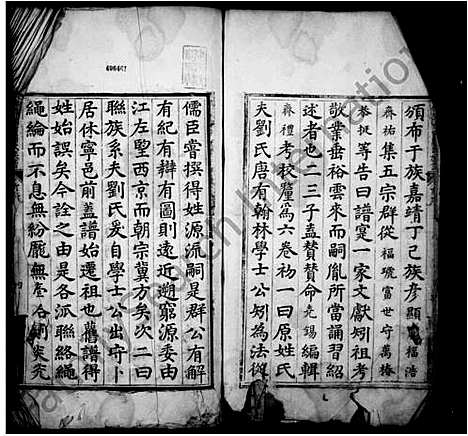 頒布于族嘉靖丁巳族彥顯 福浩
森祐集五宗群從福璣富世守萬椿
恭挺等告曰譜寔一家文獻矧祖考
敬業垂裕雲來而嗣胤所當誦習紹
述者也二三子盍贊贊命尭錫編輯
森禮考校釐為六卷初一曰原姓氏
夫劉氏唐有翰林學士公矧為法從
儒臣嘗撰得姓源流嗣是群公有解
有紀有辯有圖則遠近遡窮源委由
江左朢西京而朝宗冀方矣次二曰
聯族系夫劉氏爰自學士公出守卜
居休寧邑前蓋譜始遷祖也舊譜得
姓始誤矣今詮之由是各派聯絡繩
繩綸而不息無紛厖無